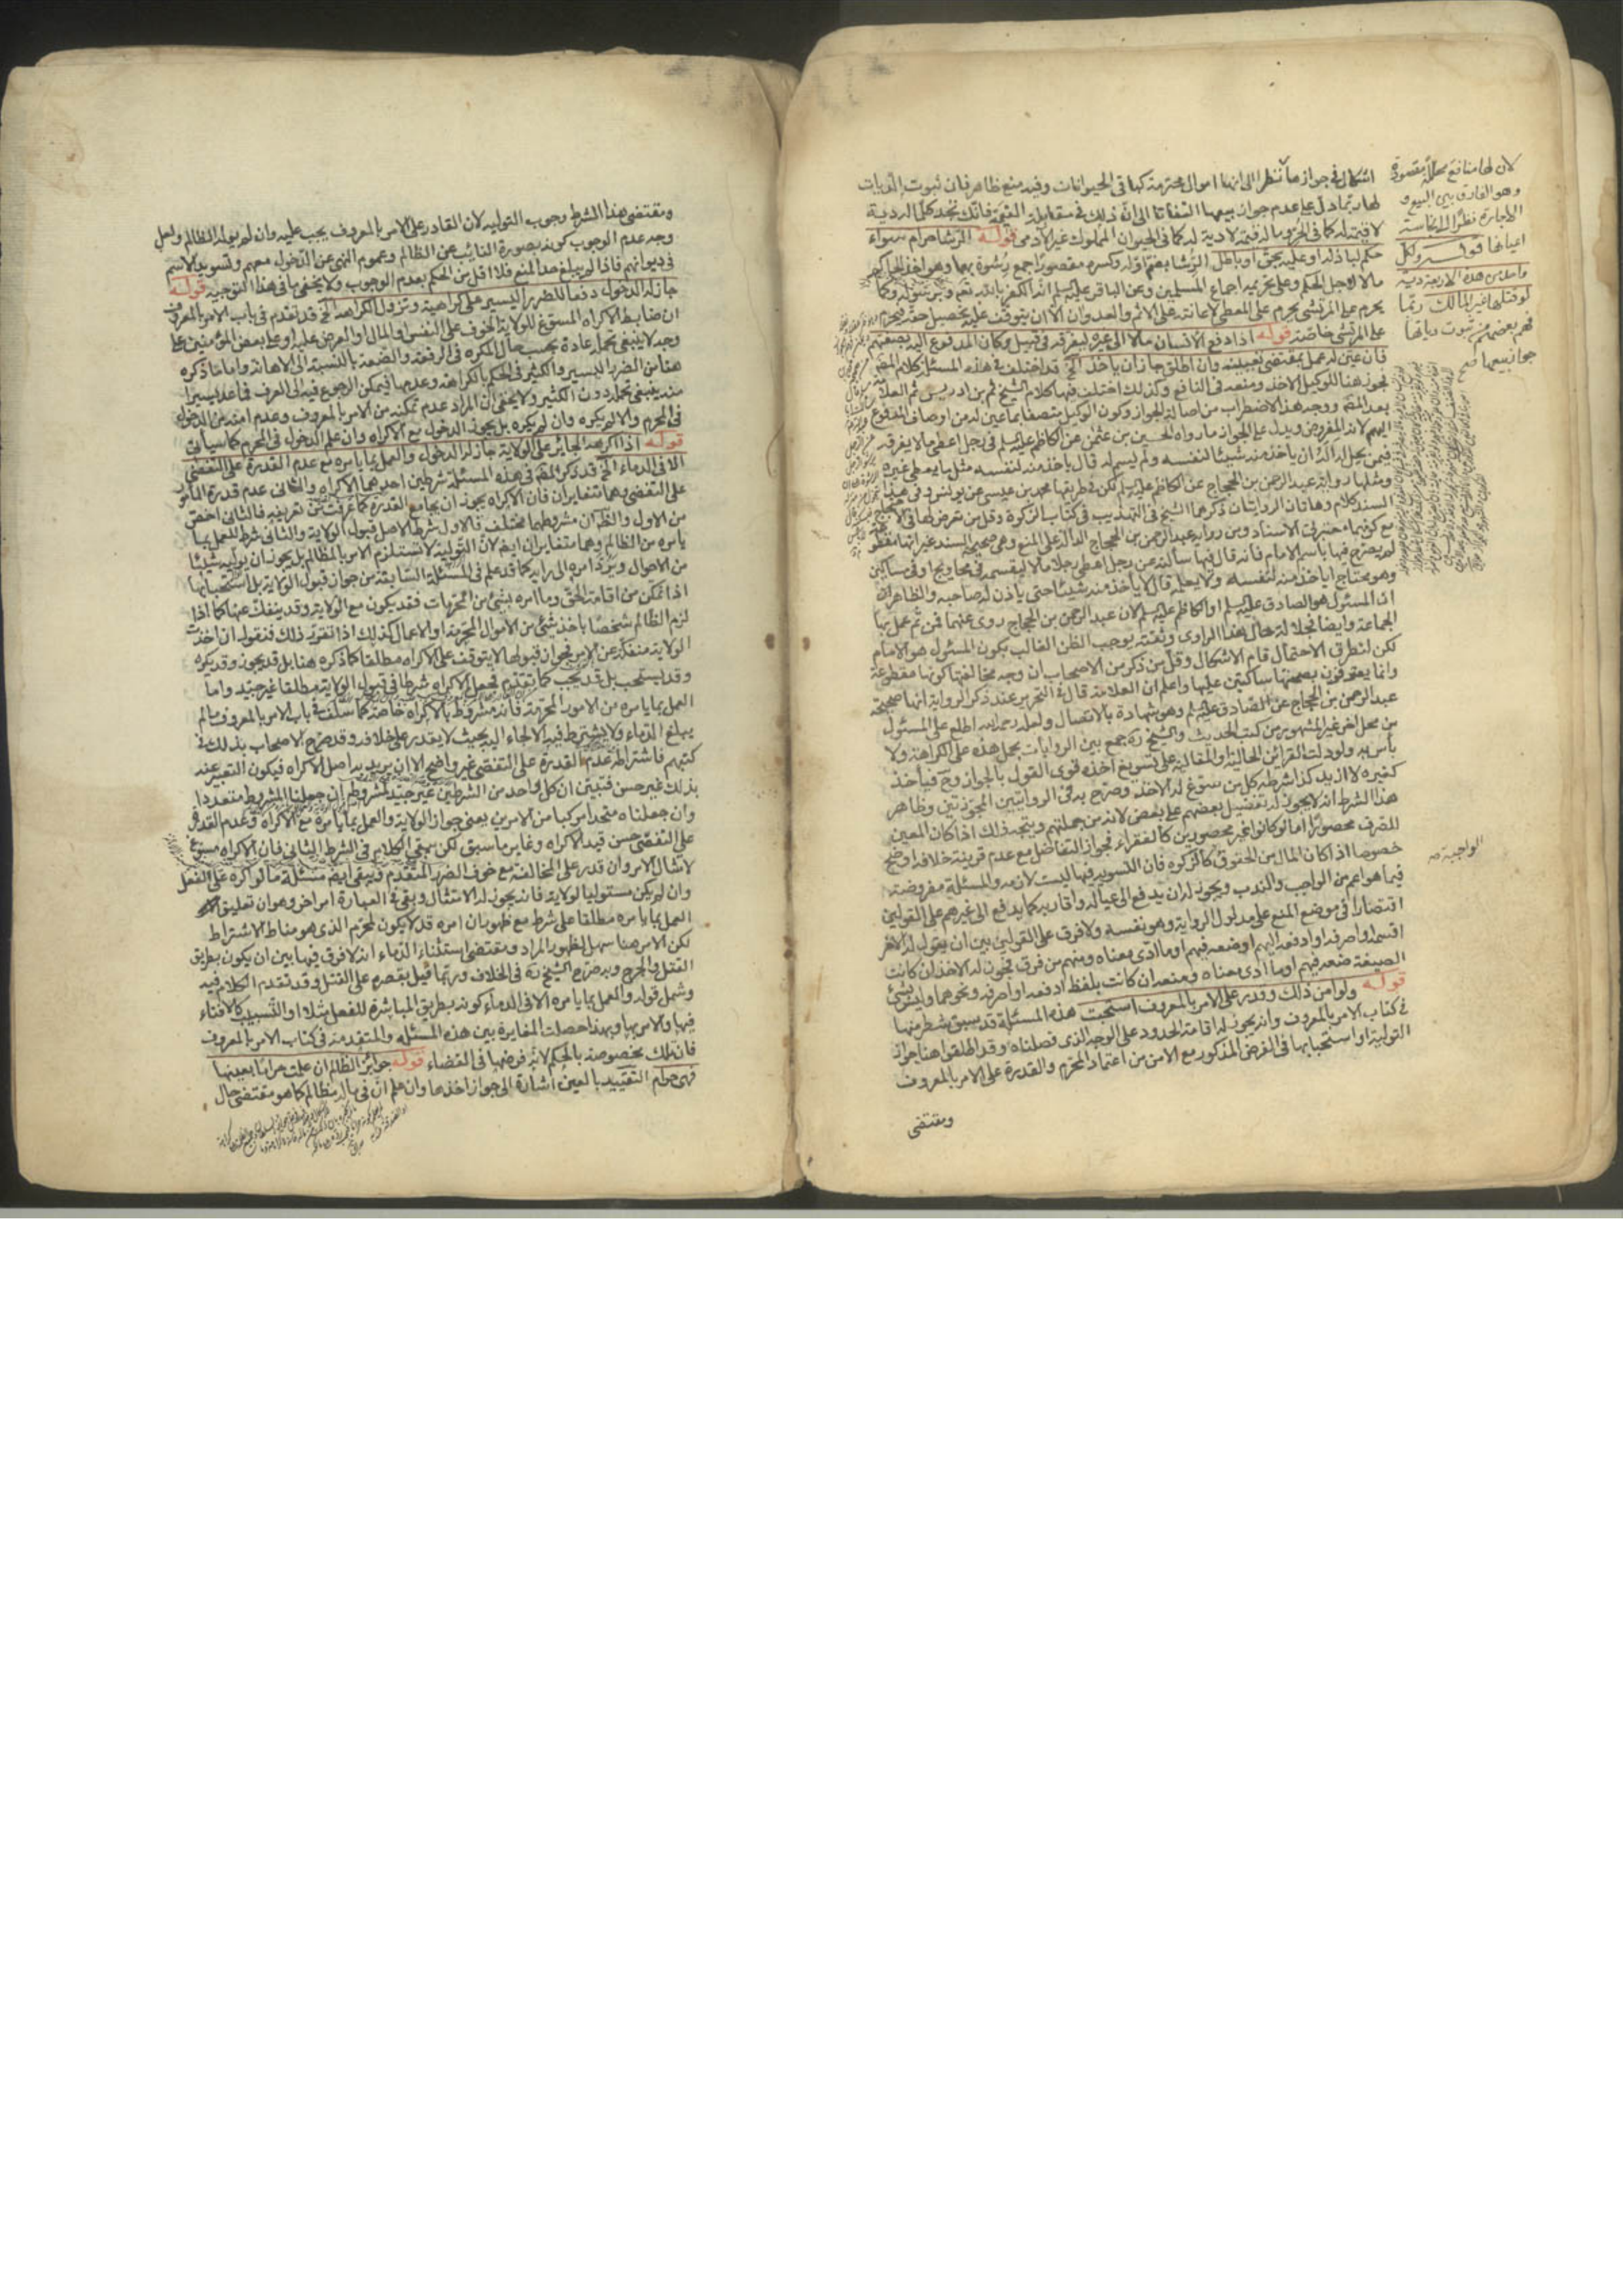 اشكال في جوازها نظرا الى انها اموال محترمة كباقي الحيوانات وفيه منع ظاهر فان ثبوت الديات
لها ربما دل على عدم جواز بيعها التفاتا الى ان ذلك في مقابلة القيمة فانك تجد كل ما له دية
لا قيمة له كما في الحر وما له قيمة لا دية له كما في الحيوان المملوك غير الآدمي قوله الرشا حرام سواء
حكم لباذله او عليه بحق او باطل الرشا بضم اوله وكسره مقصورا جمع رشوة بهما وهو اخذ الحاكم
مالا لاجل الحكم وعلى تحريمه اجماع المسلمين وعن الباقر عليه السلم انه الكفر بالله تعالى وبرسوله وكما
يحرم على المرتشي يحرم على المعطي لاعانته على الاثم والعدوان الا ان يتوقف عليه تحصيل حقه فيحرم
على المرتشي خاصة قوله اذا دفع الانسان مالا الى غيره ليفرقه في قبيل وكان المدفوع اليه بصفتهم
فان عين له عمل بمقتضى تعيينه وان اطلق جاز ان ياخذ الخ قد اختلف في هذه المسئلة كلام المصنف
فجوز هنا للوكيل الاخذ ومنعه في النافع وكذلك اختلف فيها كلام الشيخ ثم بن ادريس ثم العلامة
بعد المصنف ووجه هذا الاضطراب من اصالة الجواز وكون الوكيل متصفا بما عين له من اوصاف المدفوع
اليهم لانه المفروض ويدل على الجواز ما رواه الحسين بن عثمن عن الكاظم عليه السلم في رجل اعطي مالا يفرقه
فيمن يحل له اله ان ياخذ منه شيئا لنفسه ولم يسم له قال ياخذ منه لنفسه مثل ما يعطي غيره
ومثلها رواية عبد الرحمن بن الحجاج عن الكاظم عليه السلم لكن في طريقها محمد بن عيسى عن يونس وفي هذا
السند كلام وهاتان الروايتان ذكرهما الشيخ في التهذيب في كتاب الزكوة وقل من تعرض لها في الاحتجاج
مع كونهما معتبرتي الاسناد ومن رواية عبد الرحمن بن الحجاج الدالة على المنع وهي صحيحة السند غير انها مقطوعة
لم يصرح فيها باسم الامام فانه قال فيها سالته عن رجل اعطى رجلا مالا ليقسمه في محاويج او في مساكين
وهو محتاج اياخذ منه لنفسه ولا يعلمه قال لا ياخذ منه شيئا حتى ياذن له صاحبه والظاهر ان
ان المسئول هو الصادق عليه السلم او الكاظم عليه السلم لان عبد الرحمن بن الحجاج روى عنهما فمن ثم عمل بها
الجماعة وايضا فجلالة حال هذا الراوي وثقته يوجب الظن الغالب بكون المسئول هو الامام
لكن لتطرق الاحتمال قام الاشكال وقل من ذكر من الاصحاب ان وجه مخالفتها كونها مقطوعة
وانما يعترفون بصحتها ساكتين عليها واعلم ان العلامة قال في التحرير عند ذكر الرواية انها صحيحة
عبد الرحمن بن الحجاج عن الصادق عليه السلم وهو شهادة بالاتصال ولعله رحمه الله اطلع على المسئول
من محل اخر غير المشهور من كتب الحديث والشيخ ره جمع بين الروايات بحمل هذه على الكراهة ولا
باس به ولو دلت القرائن الحالية او المقالية على تسويغ اخذه قوى القول بالجواز وح فياخذ
كغيره لا ازيد كذا شرطه كل من سوغ له الاخذ وصرح به في الروايتين المجوزتين وظاهر
هذا الشرط انه لا يجوز له تفضيل بعضهم على بعض لانه من جملتهم ويتجه ذلك اذا كان المعين
للصرف محصورا اما لو كانوا غير محصورين كالفقراء فجواز التفاضل مع عدم قرينة خلافه اوضح
خصوصا اذا كان المال من الحقوق كالزكوه فان التسوية فيها ليست لازمه والمسئلة مفروضة
فيما هو اعم من الواجب والندب ويجوز له ان يدفع الى عياله واقاربه كما يدفع الى غيرهم على القولين
اقتصارا في موضع المنع على مدلول الرواية وهو نفسه ولا فرق على القولين بين ان يقول له الآمر
اقسمه او اصرفه او ادفعه اليهم او ضعه فيهم او ما ادى معناه ومنهم من فرق فجوز له الاخذ ان كانت
الصيغة ضعه فيهم او ما ادى معناه ومنعه ان كانت بلفظ ادفعه او اصرفه ونحوهما وليس بشئ
قوله ولو امن ذلك وقدر على الامر بالمعروف استحبت هذه المسئلة قد سبق شطر منها
في كتاب الامر بالمعروف وانه يجوز له اقامة الحدود على الوجه الذي فصلناه وقد اطلقوا هنا جواز
التولية او استحبابها في الفرض المذكور مع الامن من اعتماد المحرم والقدرة على الامر بالمعروف
ومقتضى
لان لها منافع محللة مقصودة
وهو الفارق بين البيع و
الاجارة نظرا الى نجاسة
اعيانها قوله ولكل
واحد من هذه الاربعة دية
لو قتلها غير المالك ربما
فهم بعضهم من ثبوت دياتها
جواز بيعها
الواجبة صح
ومقتضى هذا الشرط وجوب التولية لان القادر على الامر بالمعروف يجب عليه وان لم يوله الظالم ولعل
وجه عدم الوجوب كونه بصورة النائب عن الظالم وعموم النهي عن الدخول معهم وتسويد الاسم
في ديوانهم فاذا لم يبلغ حد المنع فلا اقل من الحكم بعدم الوجوب ولا يخفى ما في هذا التوجيه قوله
جاز له الدخول دفعا للضرر اليسير على كراهية وتزول الكراهة الخ قد تقدم في باب الامر بالمعروف
ان ضابط الاكراه المسوغ للولاية الخوف على النفس او المال او العرض عليه او على بعض المؤمنين على
وجه لا ينبغي تحمله عادة بحسب حال المكره في الرفعة والضعة بالنسبة الى الاهانة واما ما ذكره
هنا من الضرر اليسير والكثير في الحكم بالكراهة وعدمها فيمكن الرجوع فيه الى العرف فما عد يسيرا
منه ينبغي تحمله دون الكثير ولا يخفى ان المراد عدم تمكنه من الامر بالمعروف وعدم امنه من الدخول
في المحرم والا لم يكره وان لم يكره بل يجوز الدخول مع الاكراه وان علم الدخول في المحرم كما سياتي
قوله اذا اكرهه الجائر على الولاية جاز له الدخول والعمل بما يامره مع عدم القدرة على التفصي
الا في الدماء الخ قد ذكر المصنف في هذه المسئلة شرطين احدهما الاكراه والثاني عدم قدرة المامور
على التفصي وهما متغايران فان الاكراه يجوز ان يجامع القدرة كما عرفت من تعريفه فالثاني اخص
من الاول والظاهر ان مشروطهما مختلف فالاول شرط لاصل قبول الولاية والثاني شرط للعمل بما
يامره من الظالم وهما متغايران ايضا لان التولية لا تستلزم الامر بالمظالم بل يجوز ان يوليه شيئا
من الاحوال ويرد امره الى رايه كما قد علم في المسئلة السابقة من جواز قبول الولاية بل استحبابها
اذا تمكن من اقامة الحق وما امره بشئ من المحرمات فقد يكون مع الولاية وقد ينفك عنها كما اذا
لزم الظالم شخصا باخذ شئ من الاموال المحرمة او الاعمال كذلك اذا تقرر ذلك فنقول ان اخذت
الولاية منفكة عن الامر فجواز قبولها لا يتوقف على الاكراه مطلقا كما ذكره هنا بل قد يجوز وقد يكره
وقد يستحب بل قد يجب كما تقدم فجعل الاكراه شرطا في قبول الولاية مطلقا غير جيد واما
العمل بما يامره من الامور المحرمة فانه مشروط بالاكراه خاصة كما سلف في باب الامر بالمعروف ما لم
يبلغ الدماء ولا يشترط فيه الالجاء اليه بحيث لا يقدر على خلافه وقد صرح الاصحاب بذلك في
كتبهم فاشتراطه عدم القدرة على التفصي غير واضح الا ان يريد به اصل الاكراه فيكون التعبير عنه
بذلك غير حسن فتبين ان كل واحد من الشرطين غير جيد لمشروطه ان جعلنا المشروط متعددا
وان جعلناه متحدا مركبا من الامرين يعني جواز الولاية والعمل بما يامره مع الاكراه وعدم القدرة
على التفصي حسن قيد الاكراه وغاير ما سبق لكن يبقى الكلام في الشرط الثاني فان الاكراه مسوغ
لامتثال الامر وان قدر على المخالفة مع خوف الضرر المتقدم ويبقى ايضا مسئلة ما لو اكره على الفعل
وان لم يكن مستوليا لولاية فانه يجوز له الامتثال وبقي في العبارة امر اخر وهو ان تعليق
العمل بما يامره مطلقا على شرط مع ظهور ان امره قد لا يكون لمحرم الذي هو مناط الاشتراط
لكن الامر هنا سهل لظهور المراد ومقتضى استثناء الدماء انه لا فرق فيها بين ان يكون بطريق
القتل والجرح وبه صرح الشيخ ره في الخلاف وربما قيل بقصره على القتل وقد تقدم الكلام فيه
وشمل قوله والعمل بما يامره الا في الدماء كونه بطريق المباشرة للفعل مثلا او التسبيب كالافتاء
فيها والامر بها وبهذا حصلت المغايرة بين هذه المسئلة والمتقدمة في كتاب الامر بالمعروف
فان تلك مخصوصة بالحكم لانه فرضها في القضاء قوله جوائز الظالم ان علمت حراما بعينها
فهي حرام التقييد بالعين اشارة الى جواز اخذها وان علم ان في ماله مظالم كما هو مقتضى حال